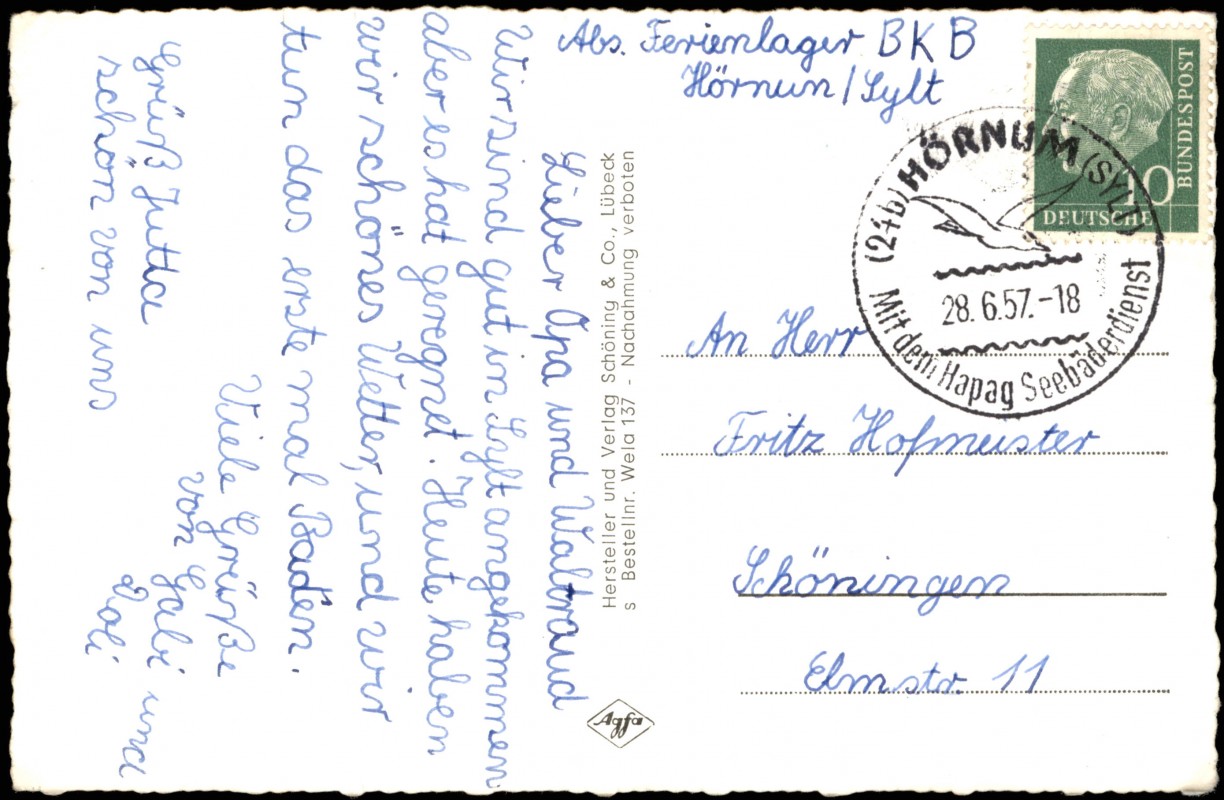 Abs. Ferienlager BKB
Hörnum/Sylt
Lieber Opa und Waltraud
Wir sind gut in Sylt angekommen
aber es hat geregnet. Heute haben
wir schönes Wetter, und wir
tun das erste mal Baden.
Viele Grüße
von Gabi und
Grüß Jutta
schön von uns
Hersteller und Verlag Schöning & Co., Lübeck
s Bestellnr. Wela 137 - Nachahmung verboten
Agfa
BUNDESPOST
10
DEUTSCHE
(24b) HÖRNUM (SYLT)
28.6.57.-18
Mit dem Hapag Seebäderdienst
An Herr
Fritz Hofmeister
Schöningen
Elmstr. 11